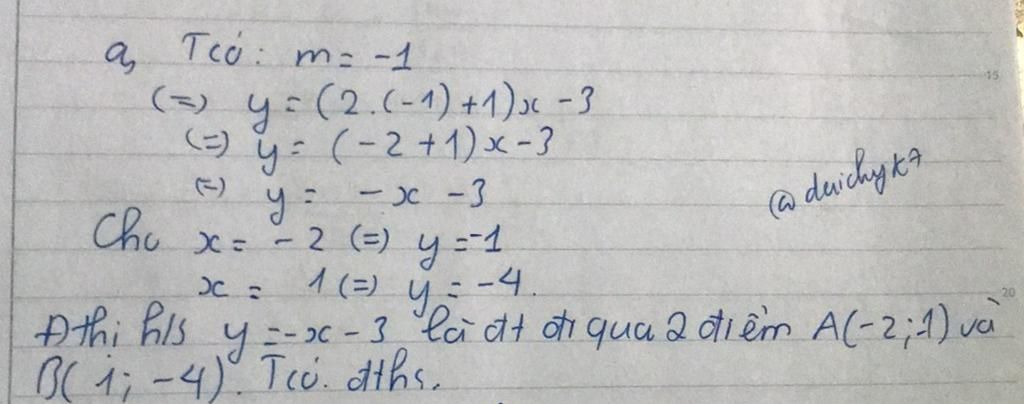 a, Tcó: m = -1
(=) y = (2.(-1)+1)x - 3
(=) y = (-2+1)x - 3
(=) y = -x - 3
@duichyk7
Cho x = -2 (=) y = -1
x = 1 (=) y = -4.
Đthị h/s y = -x - 3 là đt đi qua 2 điểm A(-2;-1) và
B(1; -4). Tcó. đths.
15
20